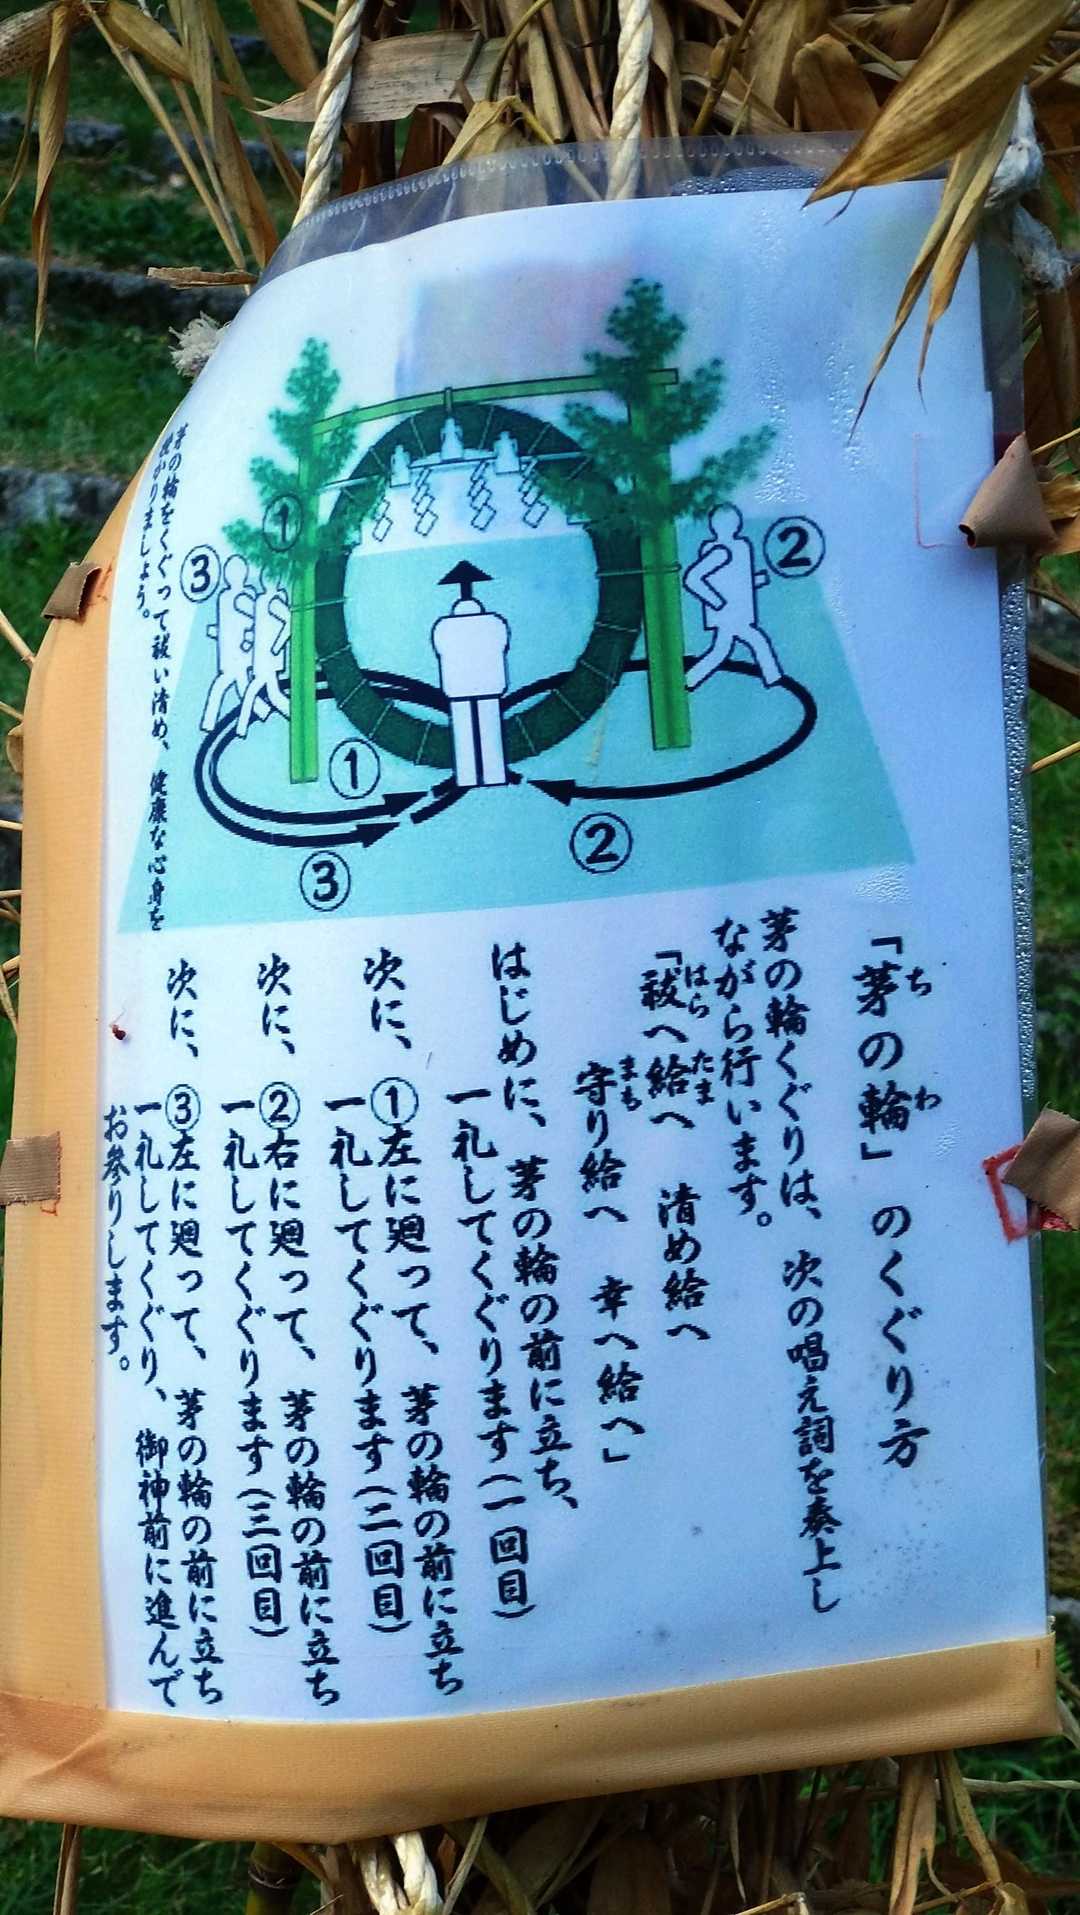 「茅の輪」のくぐり方
ち わ
茅の輪くぐりは、次の唱え詞を奏上し
ながら行います。
「祓へ給へ 清め給へ
はら たま
守り給へ 幸へ給へ」
まも
はじめに、茅の輪の前に立ち、
一礼してくぐります(一回目)
次に、①左に廻って、茅の輪の前に立ち
一礼してくぐります(二回目)
次に、②右に廻って、茅の輪の前に立ち
一礼してくぐります(三回目)
次に、③左に廻って、茅の輪の前に立ち
一礼してくぐり、御神前に進んで
お参りします。
①
③
②
①
②
③
茅の輪をくぐって祓い清め、健康な心身を
授かりましょう。